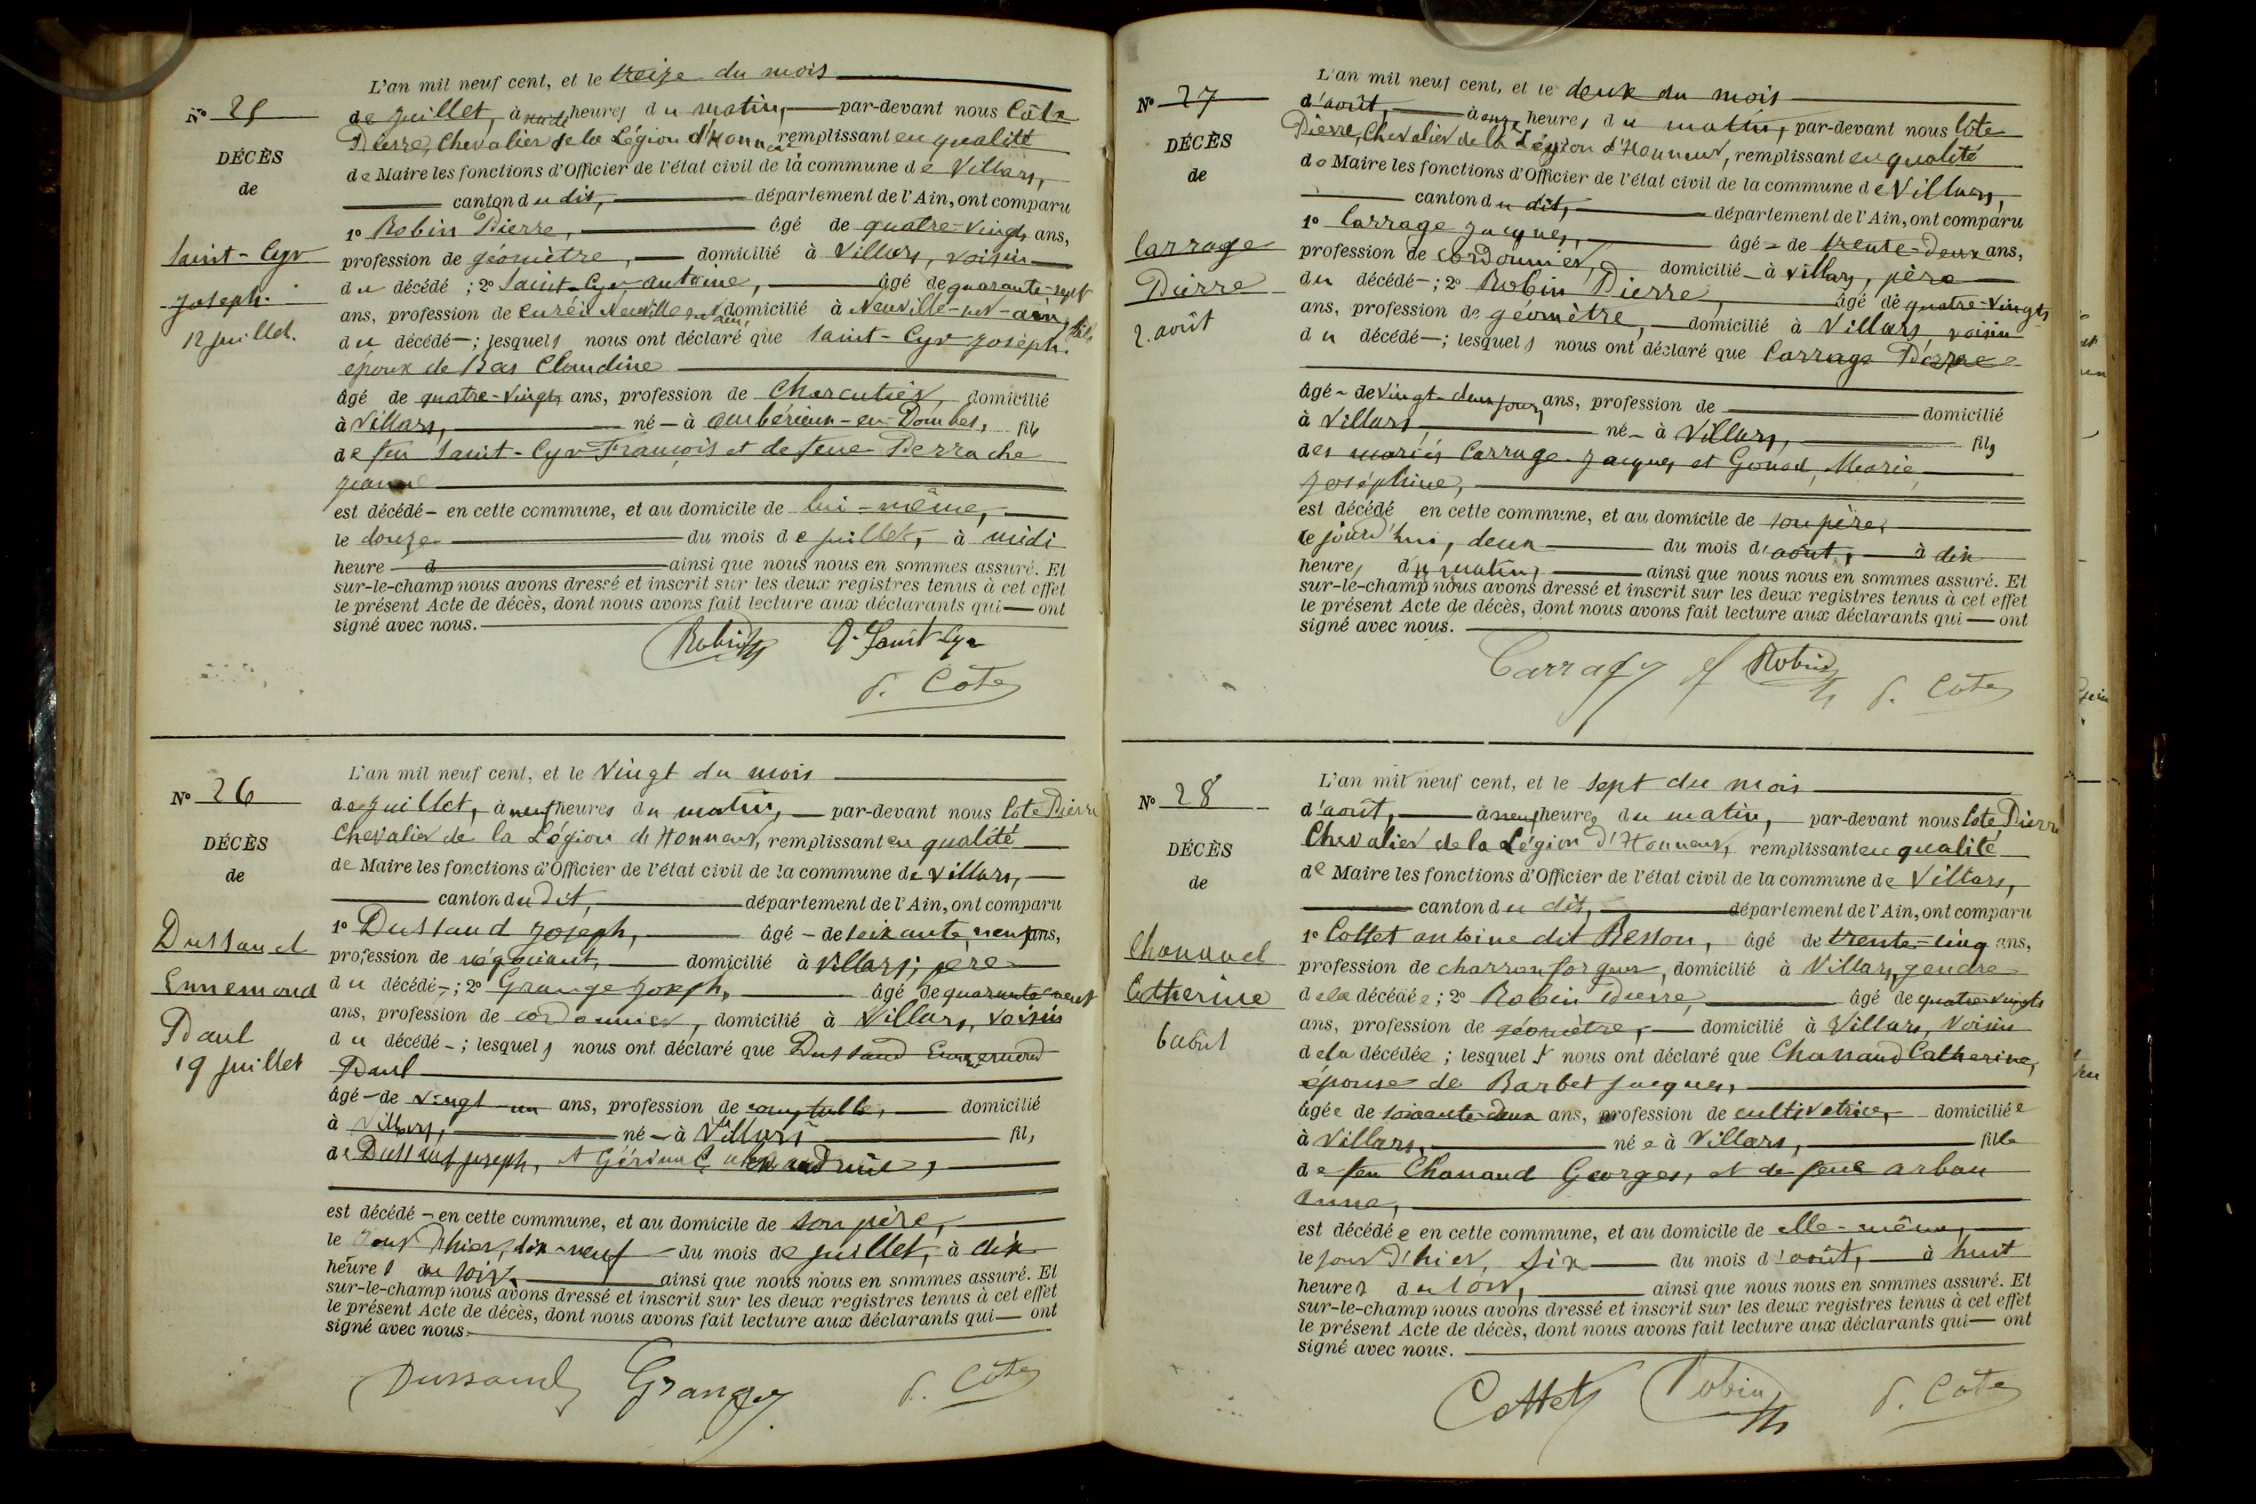 L'an mil neuf cent, et le treize du mois
N° 25
de juillet, à heures du matin, par-devant nous Côte
Pierre, Chevalier de la Légion d'Honneur remplissant en qualité
DÉCÈS
de Maire les fonctions d'Officier de l'état civil de la commune de Villars,
de
canton du dit, département de l'Ain, ont comparu
1° Robin Pierre, âgé de quatre-vingts ans,
Saint-Cyr
profession de géomètre, domicilié à Villars, voisin
Joseph.
du décédé ; 2° Saint-Cyr antoine, âgé de quarante-sept
12 juillet.
ans, profession de curé à Neuville sur ain, domicilié à Neuville-sur-ain, fils
du décédé ; lesquels nous ont déclaré que Saint-Cyr Joseph.
époux de Bas Claudine
âgé de quatre-vingts ans, profession de Charcutier, domicilié
à Villars, né à ambérieux-en-Dombes, fils
de feu Saint-Cyr François et de feue Perrache
Jeanne
est décédé en cette commune, et au domicile de lui-même,
le douze du mois de juillet, à midi
heure d ainsi que nous nous en sommes assuré. Et
sur-le-champ nous avons dressé et inscrit sur les deux registres tenus à cet effet
le présent Acte de décès, dont nous avons fait lecture aux déclarants qui ont
signé avec nous.
Robin A. Saint-Cyr
P. Côte
L'an mil neuf cent, et le vingt du mois
N° 26
de juillet, à neuf heures du matin, par-devant nous Côte Pierre
Chevalier de la Légion d'Honneur, remplissant en qualité
DÉCÈS
de Maire les fonctions d'Officier de l'état civil de la commune de Villars,
de
canton du dit, département de l'Ain, ont comparu
1° Dussaud Joseph, âgé de soixante neuf ans,
Dussaud
profession de négociant, domicilié à Villars, père
Ennemond
du décédé ; 2° Grange Joseph, âgé de quarante neuf
Paul
ans, profession de cordonnier, domicilié à Villars, voisin
19 juillet
du décédé ; lesquels nous ont déclaré que Dussaud Ennemond
Paul
âgé de vingt-un ans, profession de comptable, domicilié
à Villars, né à Villars fils
de Dussaud Joseph, et
est décédé en cette commune, et au domicile de son père,
le jour d'hier, dix-neuf du mois de juillet, à dix
heures du soir, ainsi que nous nous en sommes assuré. Et
sur-le-champ nous avons dressé et inscrit sur les deux registres tenus à cet effet
le présent Acte de décès, dont nous avons fait lecture aux déclarants qui ont
signé avec nous.
Dussaud Grange P. Côte
L'an mil neuf cent, et le deux du mois
N° 27
d'août, à onze heures du matin, par-devant nous Côte
Pierre, Chevalier de la Légion d'Honneur, remplissant en qualité
DÉCÈS
de Maire les fonctions d'Officier de l'état civil de la commune de Villars,
de
canton du dit, département de l'Ain, ont comparu
1° Carrage Jacques, âgé de trente-deux ans,
Carrage
profession de cordonnier, domicilié à Villars, père
Pierre
du décédé ; 2° Robin Pierre, âgé de quatre-vingts
2. août
ans, profession de géomètre, domicilié à Villars, voisin
du décédé ; lesquels nous ont déclaré que Carrage Pierre
âgé de vingt-deux jours, ans, profession de domicilié
à Villars né à Villars, fils
des mariés Carrage Jacques et Gonod, Marie
Joséphine,
est décédé en cette commune, et au domicile de son père,
le jourd'hui, deux du mois d'août, à dix
heures du matin, ainsi que nous nous en sommes assuré. Et
sur-le-champ nous avons dressé et inscrit sur les deux registres tenus à cet effet
le présent Acte de décès, dont nous avons fait lecture aux déclarants qui ont
signé avec nous.
Carrage J Robin P. Côte
L'an mil neuf cent, et le sept du mois
N° 28
d'août, à neuf heures du matin, par-devant nous Côte Pierre
Chevalier de la Légion d'Honneur, remplissant en qualité
DÉCÈS
de Maire les fonctions d'Officier de l'état civil de la commune de Villars,
de
canton du dit, département de l'Ain, ont comparu
1° Cottet antoine dit Besson, âgé de trente-cinq ans,
Chanaud
profession de charron forgeur, domicilié à Villars, gendre
Catherine
de la décédée ; 2° Robin Pierre, âgé de quatre-vingts
6 août
ans, profession de géomètre, domicilié à Villars, voisin
de la décédée ; lesquels nous ont déclaré que Chanaud Catherine,
épouse de Barbet Jacques,
âgée de soixante-deux ans, profession de cultivatrice, domiciliée
à Villars, née à Villars, fille
de feu Chanaud Georges, et de feue arban
anne,
est décédée en cette commune, et au domicile de elle-même,
le jour d'hier, six du mois d'août, à huit
heures du soir, ainsi que nous nous en sommes assuré. Et
sur-le-champ nous avons dressé et inscrit sur les deux registres tenus à cet effet
le présent Acte de décès, dont nous avons fait lecture aux déclarants qui ont
signé avec nous.
Cottet Robin P. Côte